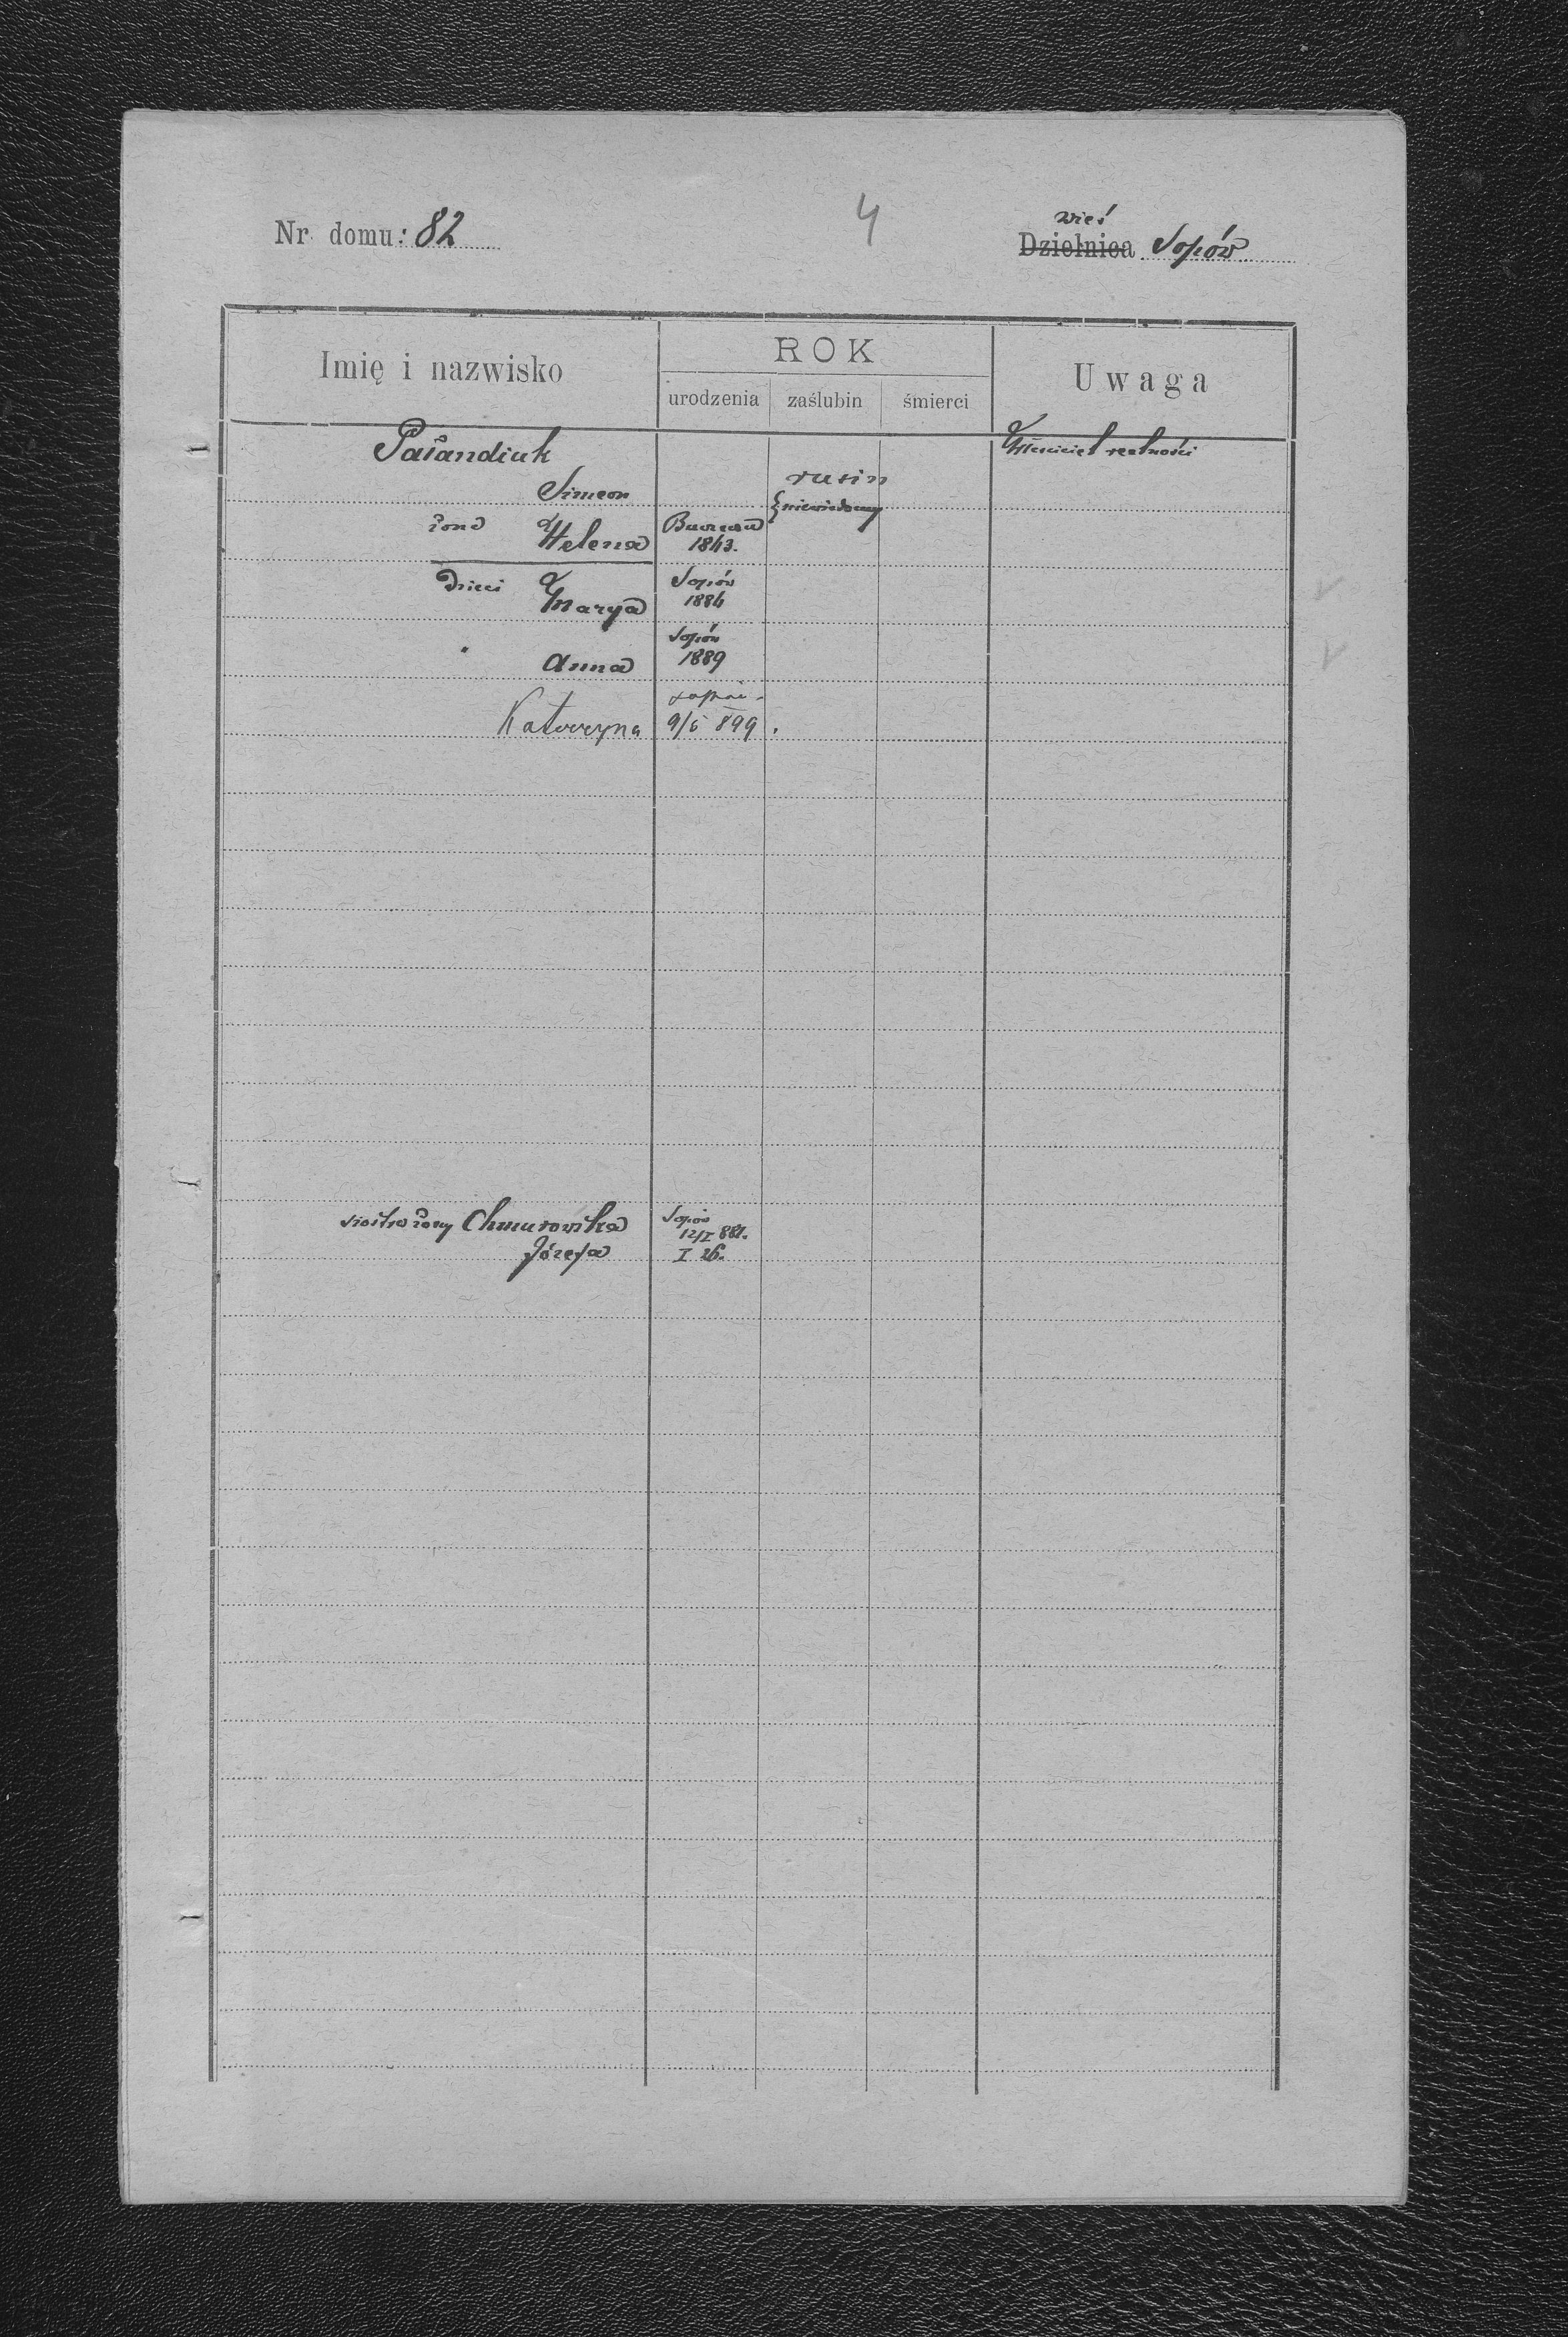 Nr. domu: 82
4
wieś
Dzielnica Sopów
Imię i nazwisko
ROK
urodzenia
zaślubin
śmierci
Uwaga
Pałandiuk
Właściciel realności
Simeon
rusin
niewiadomy
żona Helena
1843.
Dzieci Marya
Sopów
1884
" Anna
Sopów
1889
Katarzyna
9/5 899.
siostra żony Chmurowska
Józefa
Sopów
12/I 881.
I 26.